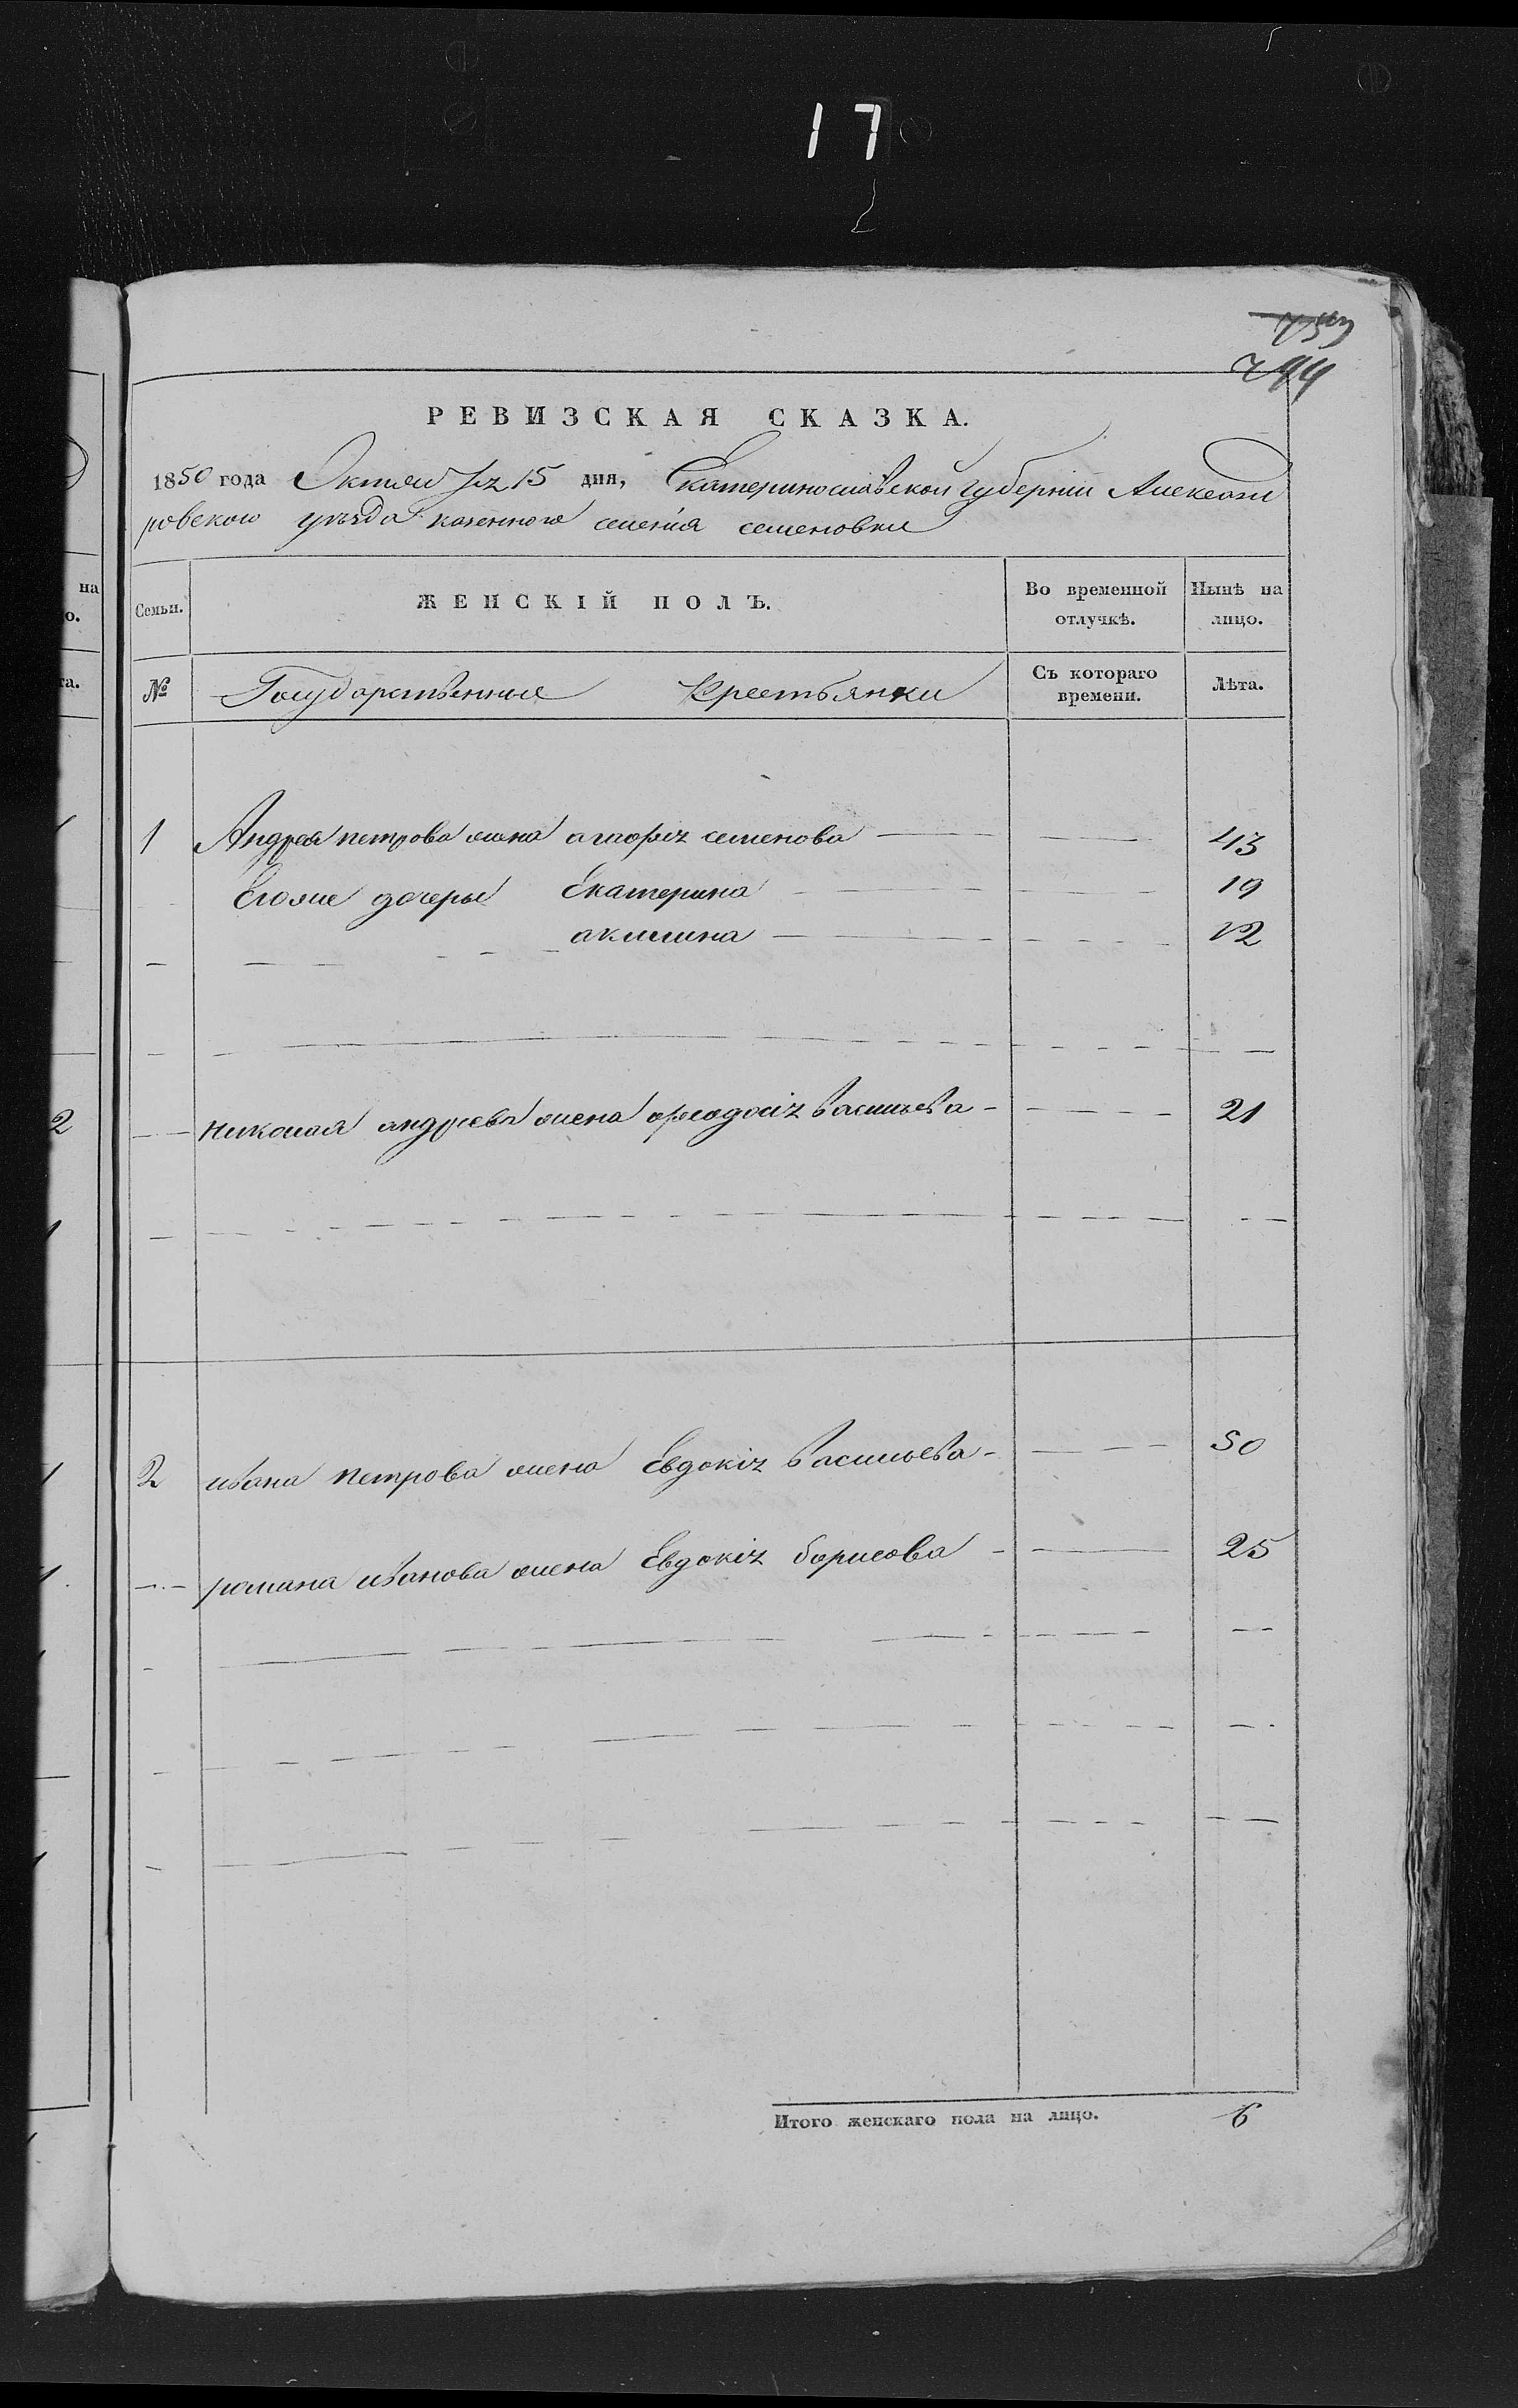 17
РЕВИЗСКАЯ СКАЗКА.
1850 года Октября 15 дня, Екатеринославской губерніи Александ
ровского уезда казенного селенія семеновки
на
о.
Семьи. ЖЕНСКІЙ ПОЛЪ. Во временной отлучкѣ. Нынѣ на лицо.
та.
№ Государственные Крестьянки Съ котораго времени. Лѣта.
1 Андрея петрова жена агафія семенова 43
Егоже дочеры Екатерина 19
акилина 12
2
николая андреева жена феодосія васильева 21
2 ивана петрова жена Евдокія васильева 50
романа иванова жена Евдокія борисова 25
Итого женскаго пола на лицо. 6